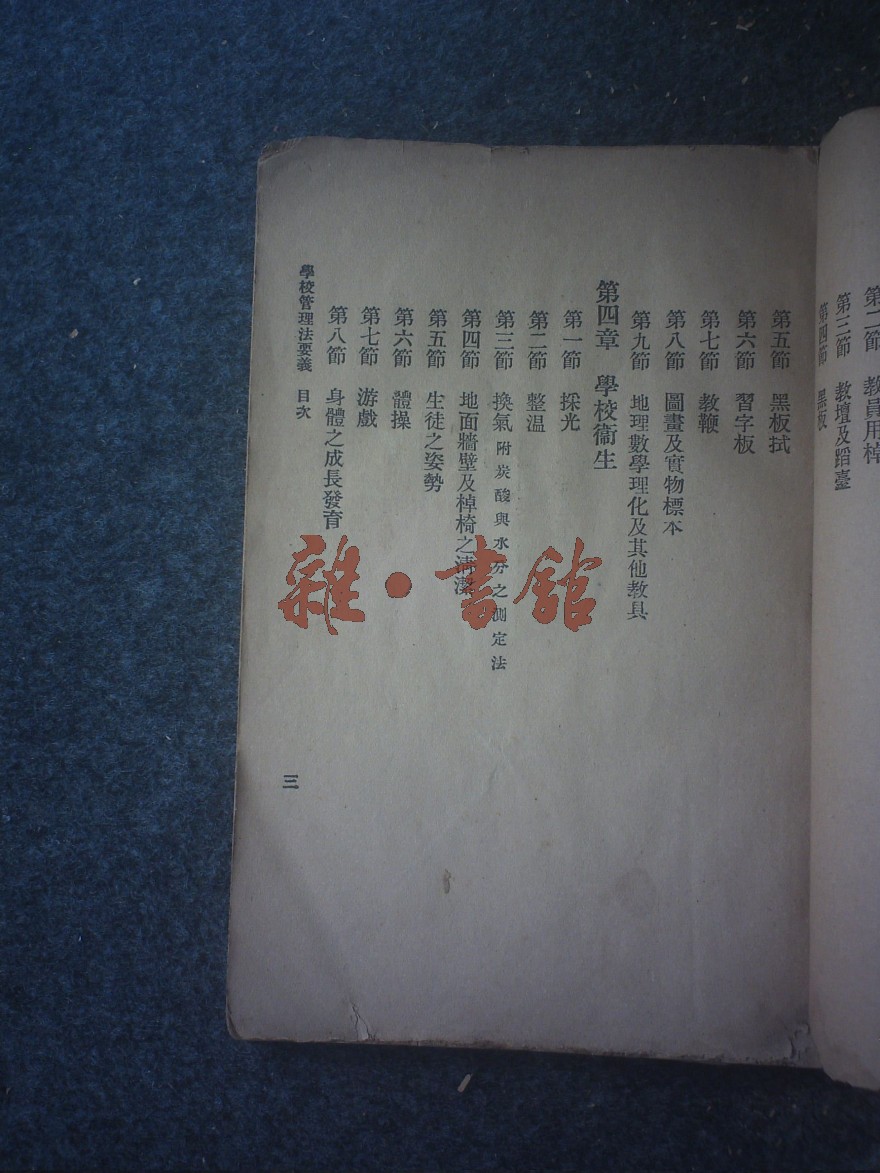 第二節 教員用棹
第三節 教壇及蹈臺
第四節 黑板
第五節 黑板拭
第六節 習字板
第七節 教鞭
第八節 圖畫及實物標本
第九節 地理數學理化及其他教具
第四章 學校衞生
第一節 採光
第二節 整温
第三節 換氣 附炭酸與水分之測定法
第四節 地面牆壁及棹椅之清潔
第五節 生徒之姿勢
第六節 體操
第七節 游戲
第八節 身體之成長發育
學校管理法要義 目次
三
雜·書館